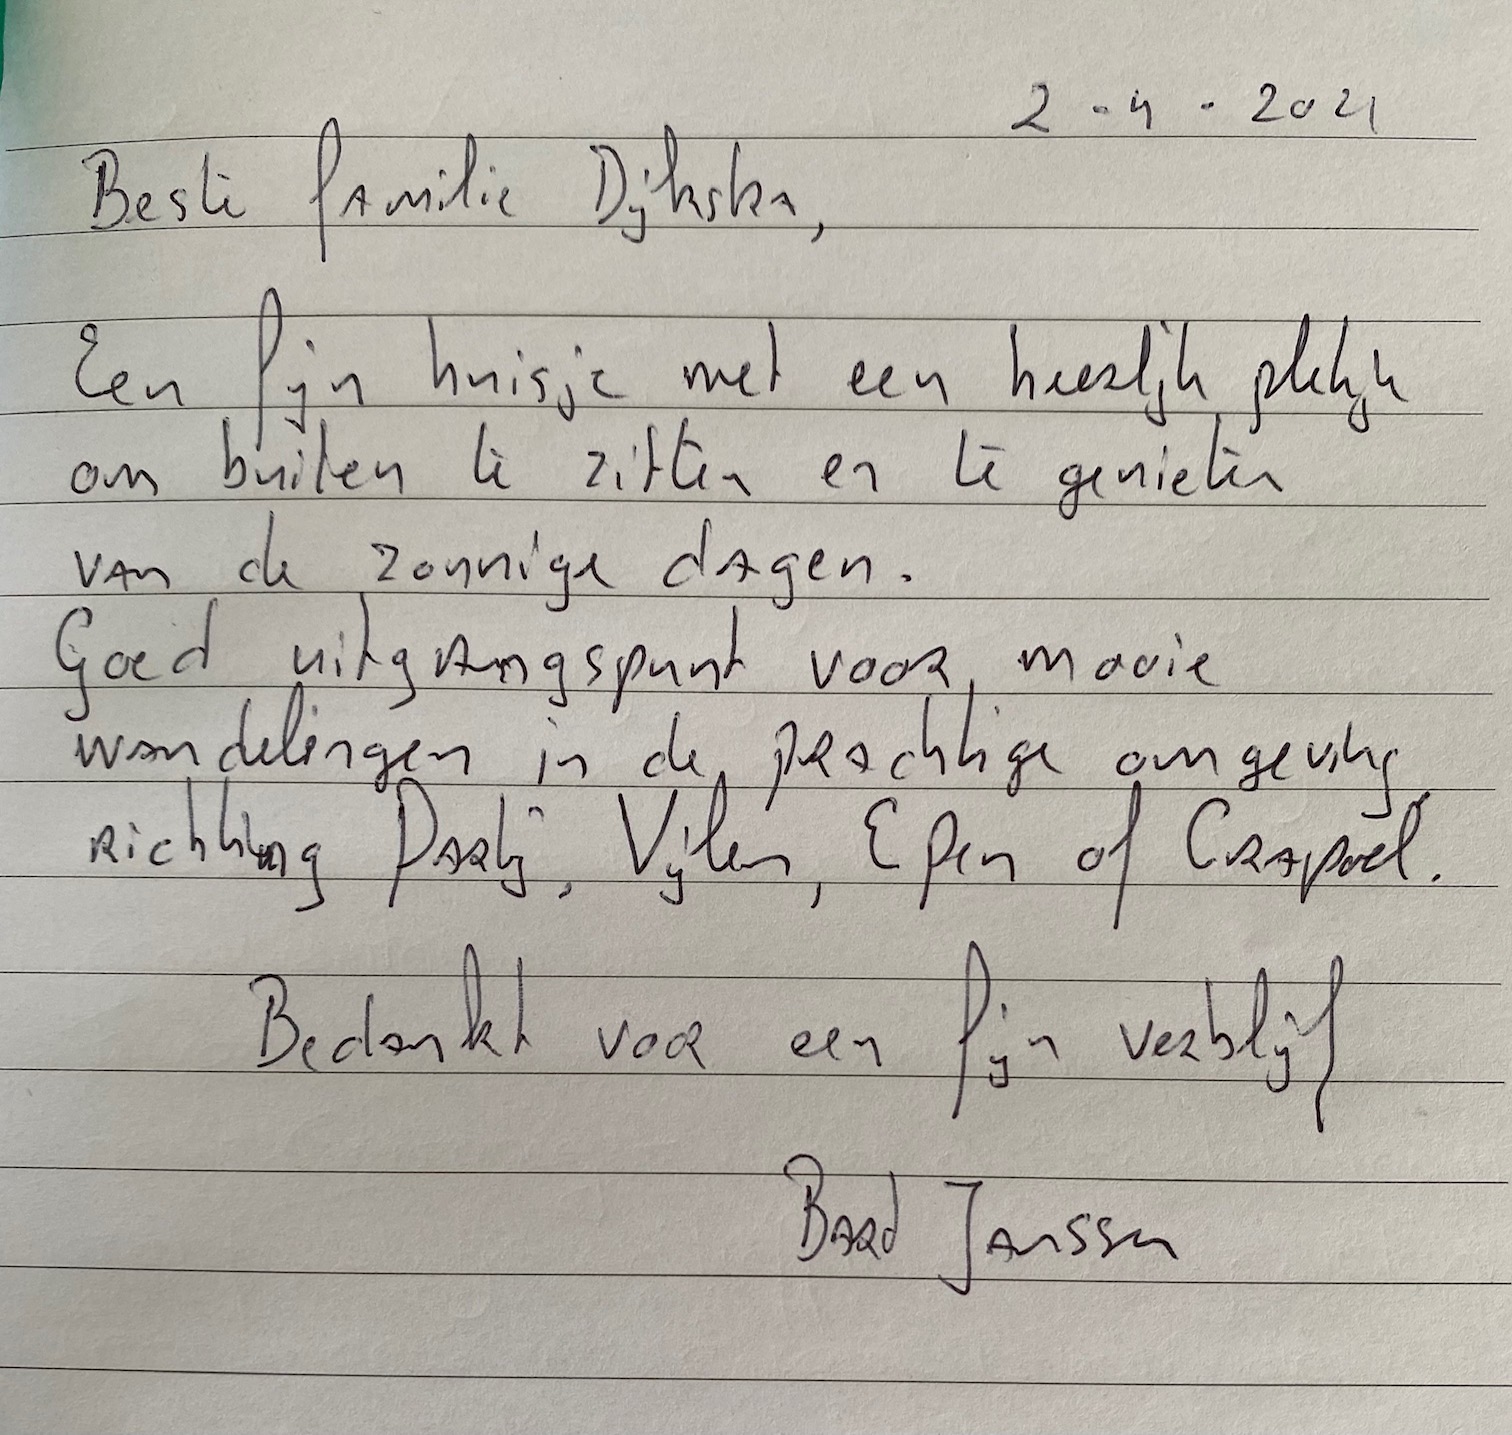 2-4-2021
Beste familie Dijkstra,
Een fijn huisje met een heerlijk plekje
om buiten te zitten en te genieten
van de zonnige dagen.
Goed uitgangspunt voor mooie
wandelingen in de prachtige omgeving
richting Partij, Vijlen, Epen of Crapoel.
Bedankt voor een fijn verblijf
Bard Janssen